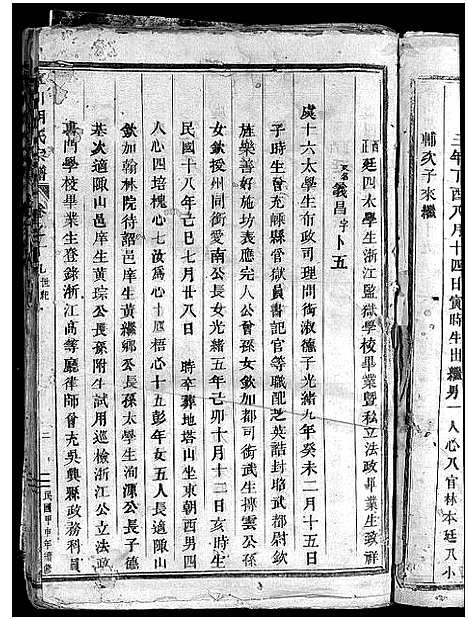 三年丁酉八月十四日寅時生出繼男一人心八官林本廷八小
輔次子來繼
酉正廷四太學生浙江監獄學校畢業暨私立法政畢業生政祥
又名義昌字卜五
虞十六太學生布政司理問銜淑德子光緒九年癸未二月十五日
子時生曾充嵊縣管獄員書記官等職配芝英誥封昭武都尉欽
旌樂善好施坊表應完人公曾孫女欽加都司銜武生摶雲公孫
女欽授州同銜愛人公長女光緒五年己卯十月十二日亥時生
民國十八年己巳七月廿八日 時卒葬地塔山坐東朝西男四
人心四培槐心七汝為心十梧心十五彭年女五人長適陳山
欽加翰林院待詔邑庠生黃繼鄉公長孫太學生洵源公長子德
基次適陳山邑庠生黃琮公長孫附生試用巡檢浙江公立法政
專門學校畢業生登錄浙江高等廳律師曾充吳興縣政務科員
氏宗譜
民國甲申年續修